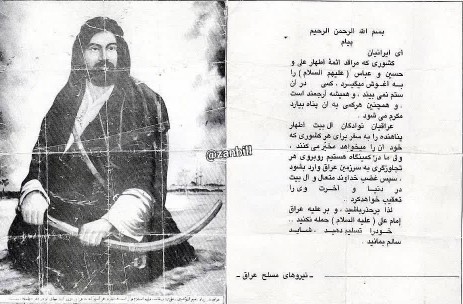 بسم الله الرحمن الرحيم
پیام
ای ایرانیان
کشوری که مراقد ائمهٔ اطهار علی و
حسین و عباس (علیهم السلام) را
به آغوش میگیرد، کسی در آن
ستم نمی بیند، و همیشه ارجمند است
و همچنین هرکس به آن پناه بیارد
مکرم می شود.
عراقیان نوادگان ال بیت اطهار
پناهنده را به سفر برای هر کشوری که
خود آن را میخواهد مخیّر می کنند،
وق ما در کمینگاه هستیم روبروی هر
تجاوزگری به سرزمین عراق وارد بشود
، سپس غضب خداوند متعال و ال بیت
در دنیا و آخرت وی را
تعقیب خواهد کرد.
لذا برحذر باشید، و بر علیه عراق
إمام علی (علیه السلام) حمله نکنید.
خود را تسلیم دهید، شاید
سالم بمانید.
ـ نیروهای مسلح عراق ـ
@zanbill